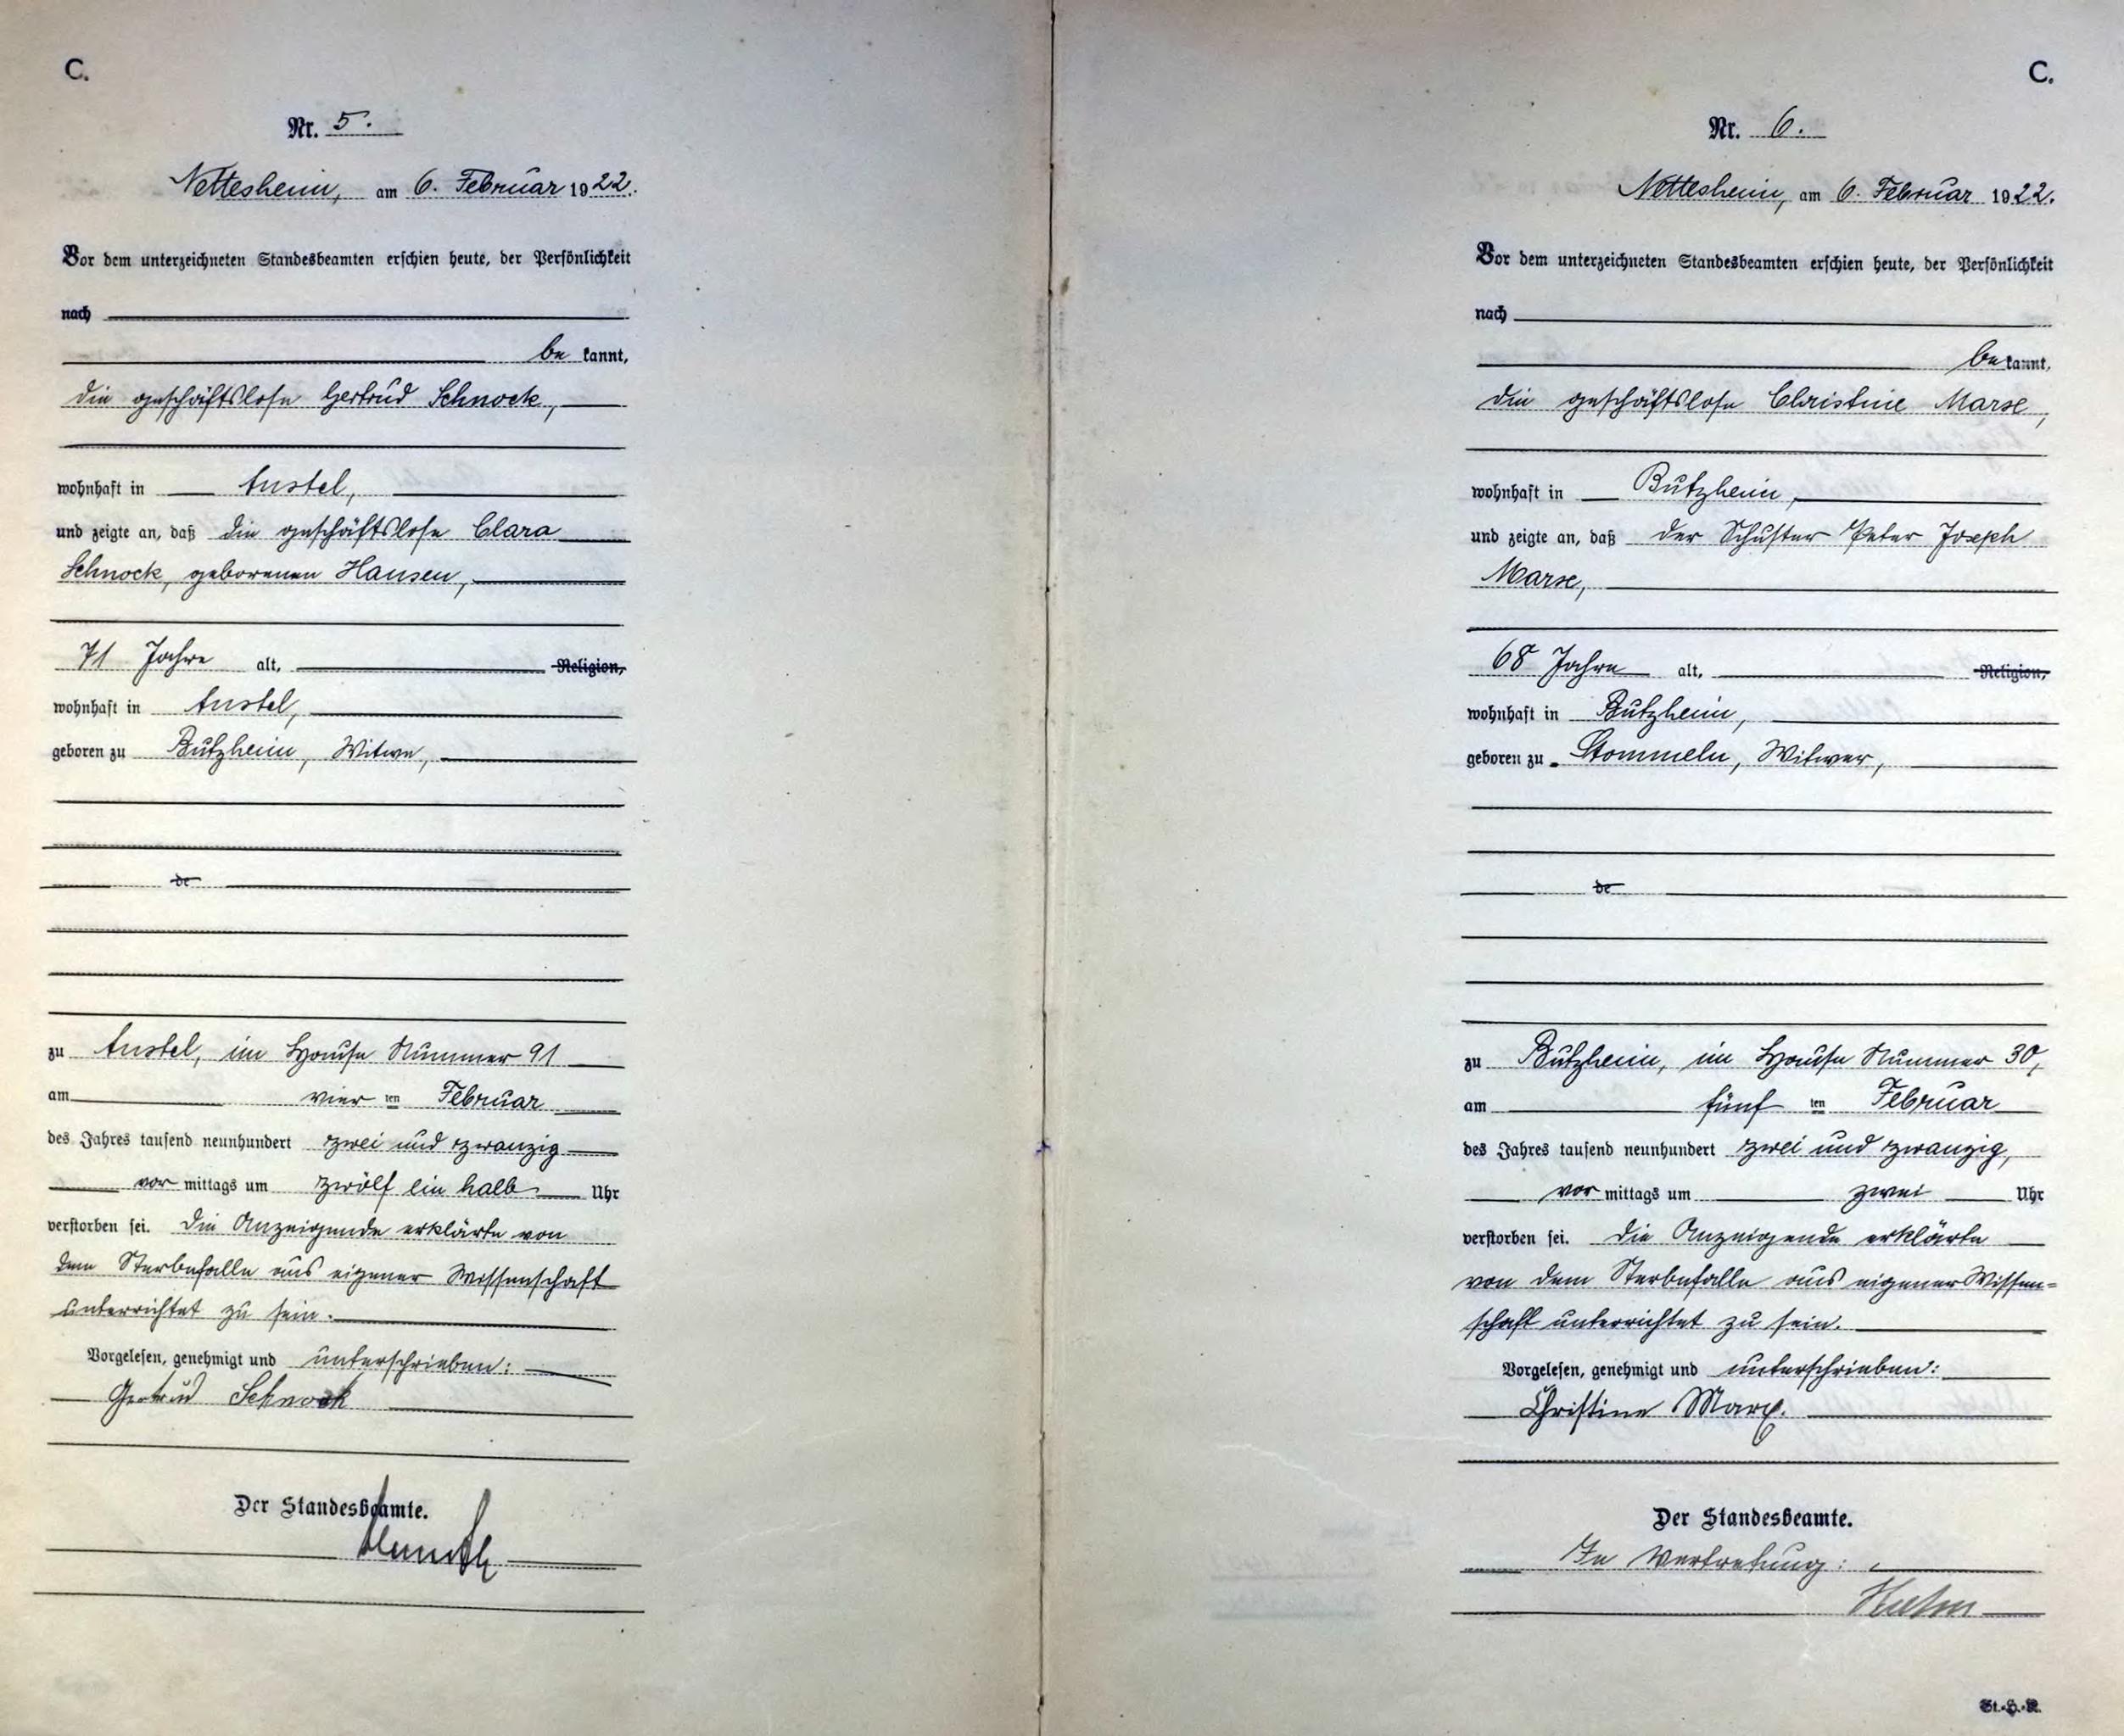 C.
Nr. 5.
Nettesheim, am 6. Februar 1922.
Vor dem unterzeichneten Standesbeamten erschien heute, der Persönlichkeit
nach
be kannt,
die geschäftslose Gertrud Schnock,
wohnhaft in Anstel,
und zeigte an, daß die geschäftslose Clara
Schnock, geborenen Hansen,
71 Jahre alt, Religion,
wohnhaft in Anstel,
geboren zu Butzheim, Witwe,
de
zu Anstel, im Hause Nummer 91
am vier ten Februar
des Jahres tausend neunhundert zwei und zwanzig
vor mittags um zwölf ein halb Uhr
verstorben sei. Die Anzeigende erklärte von
dem Sterbefalle aus eigener Wissenschaft
unterrichtet zu sein.
Vorgelesen, genehmigt und unterschrieben:
Gertrud Schnock
Der Standesbeamte.
C.
Nr. 6.
Nettesheim, am 6. Februar 1922.
Vor dem unterzeichneten Standesbeamten erschien heute, der Persönlichkeit
nach
be kannt,
die geschäftslose Christine Marx,
wohnhaft in Butzheim,
und zeigte an, daß der Schuster Peter Joseph
Marx,
68 Jahre alt, Religion,
wohnhaft in Butzheim,
geboren zu Stommeln, Witwer,
de
zu Butzheim, im Hause Nummer 30,
am fünf ten Februar
des Jahres tausend neunhundert zwei und zwanzig,
vor mittags um zwei Uhr
verstorben sei. Die Anzeigende erklärte
von dem Sterbefalle aus eigener Wissen=
schaft unterrichtet zu sein.
Vorgelesen, genehmigt und unterschrieben:
Christine Marx.
Der Standesbeamte.
In Vertretung:
St.-H.-R.